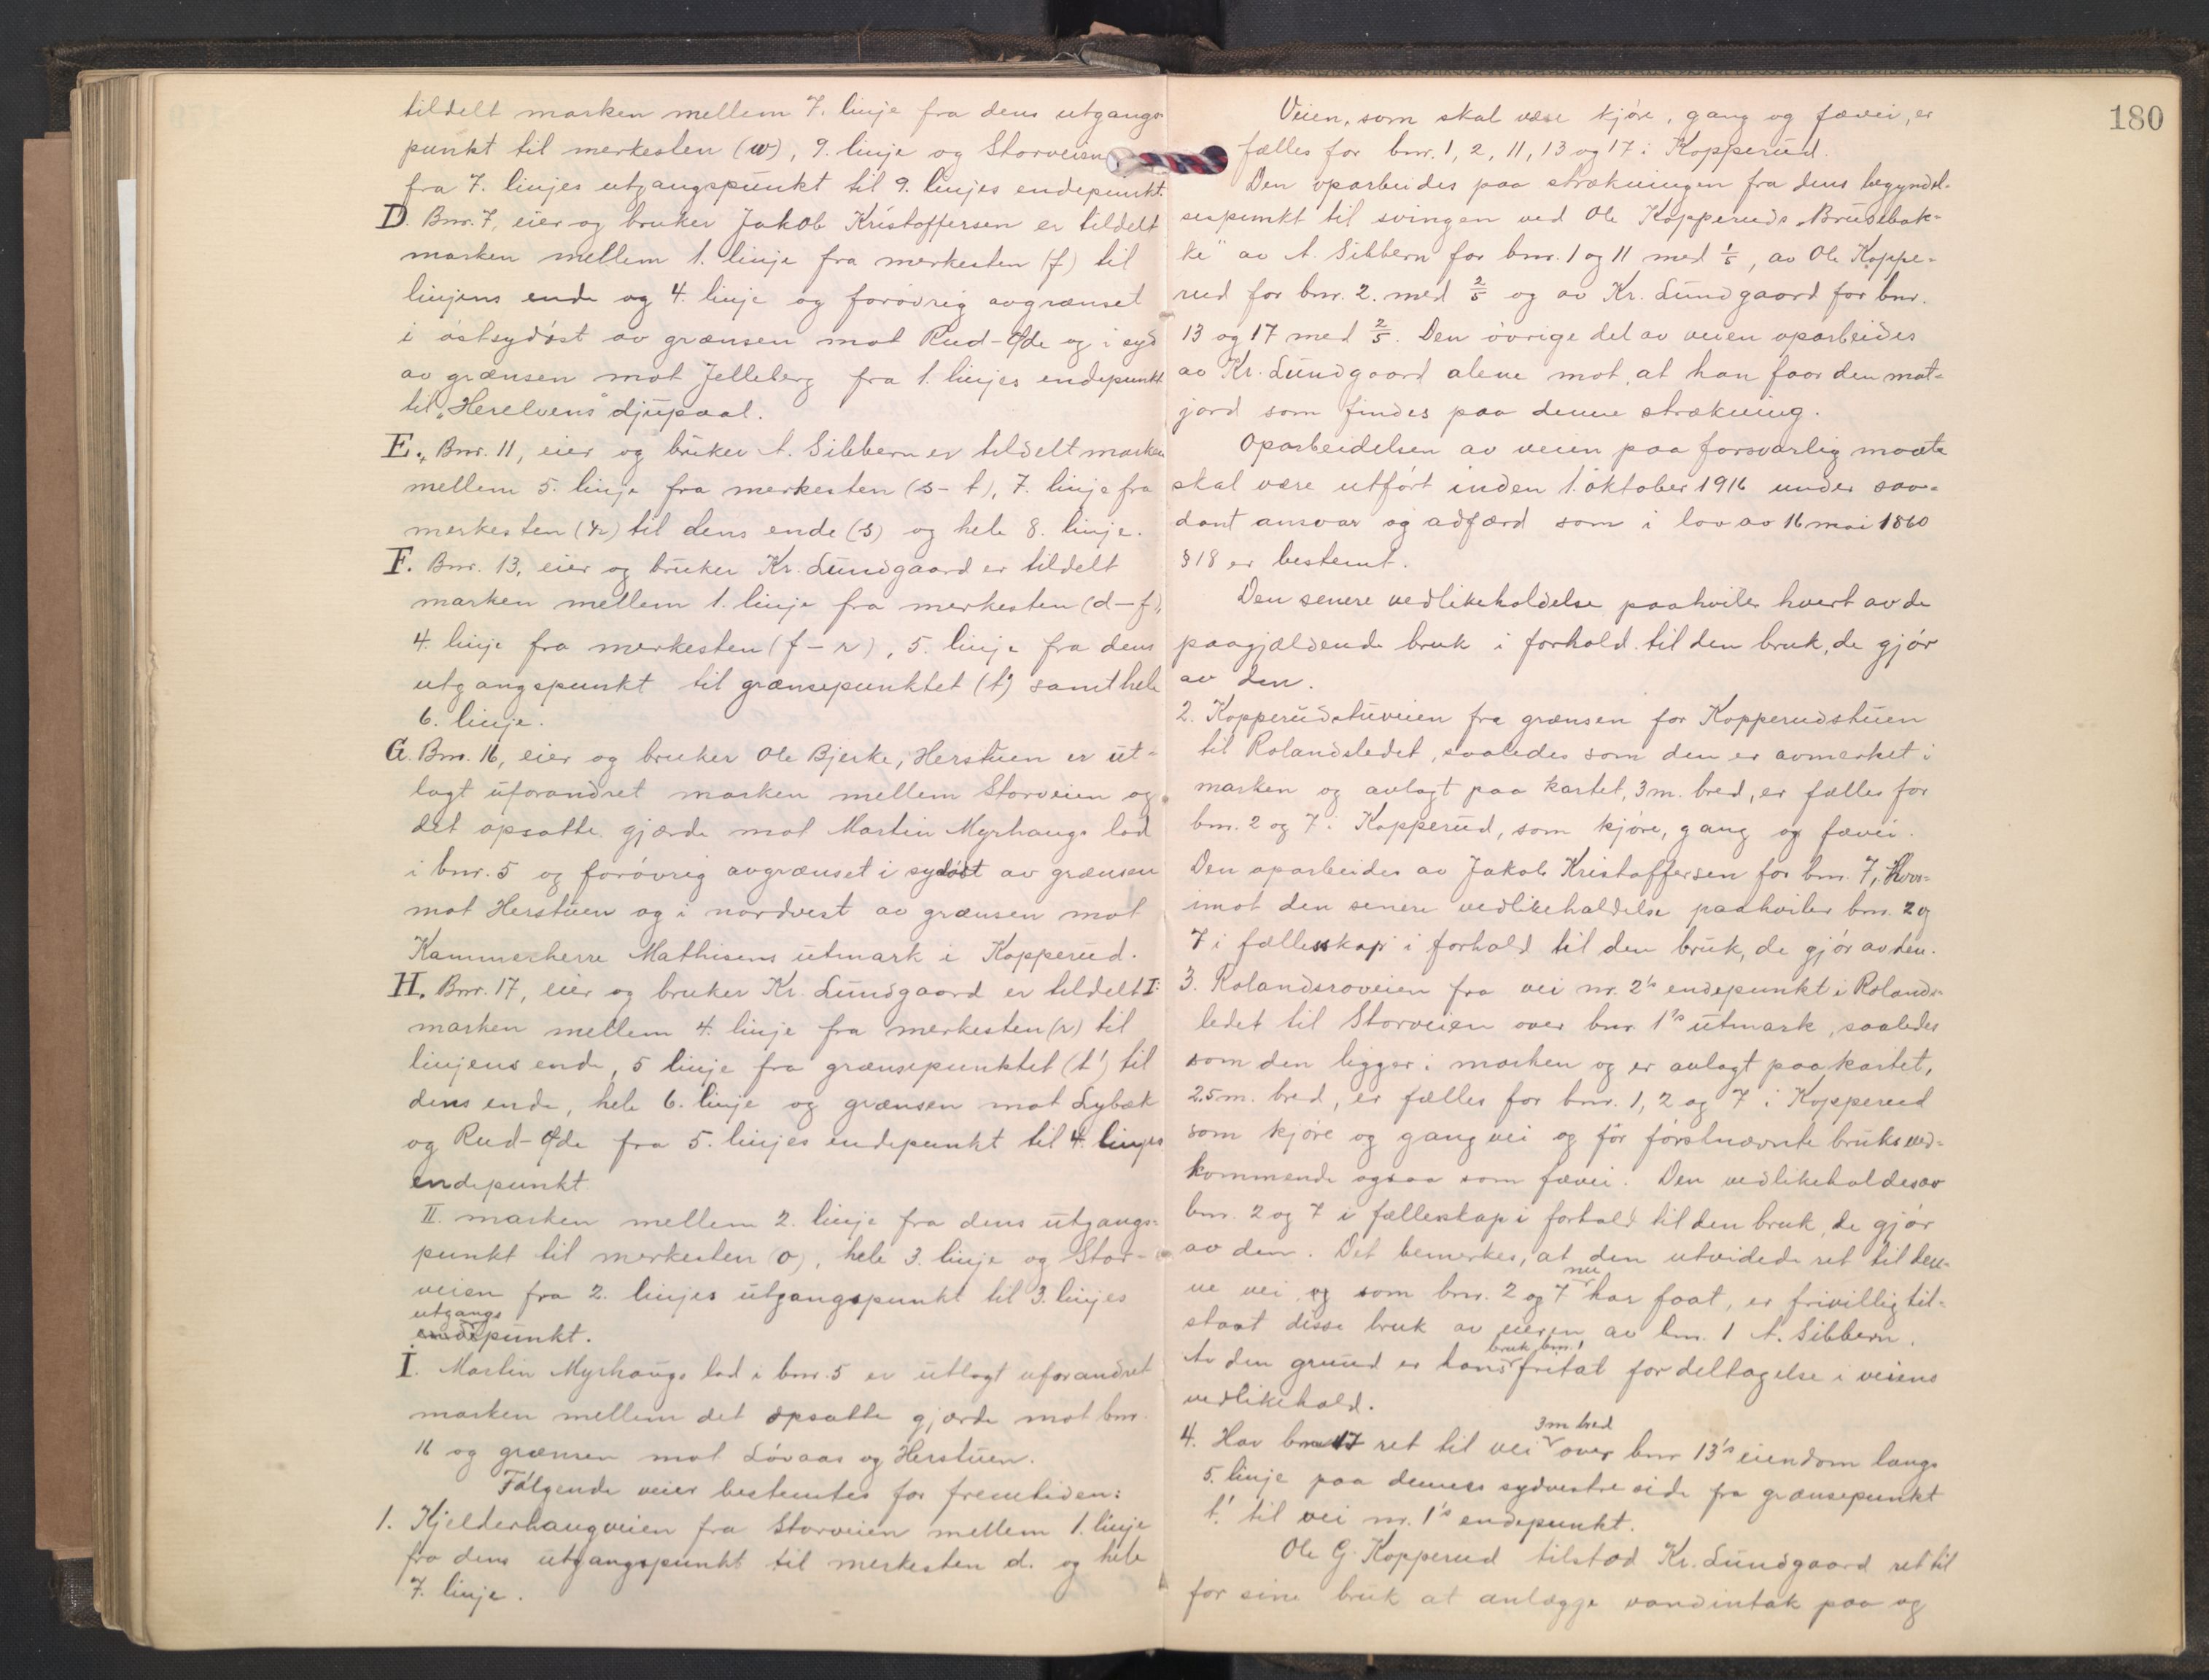 tildelt marken mellem 7. linje fra dens utgangs-
punkt til merkesten (w), 9. linje og Storveien
fra 7. linjes utgangspunkt til 9. linjes endepunkt.
D. Bnr. 7, eier og bruker Jakob Kristoffersen er tildelt
marken mellem 1. linje fra merkesten (f) til
linjens ende og 4. linje og forøvrig avgrænset
i østsydøst av grænsen mot Rud-Øde og i syd
av grænsen mot Jelleberg fra 1. linjes endepunkt
til „Herelvens" djupaal.
E. Bnr. 11, eier og bruker A. Sibbern er tildelt marken
mellem 5. linje fra merkesten (s-t), 7. linje fra
merkesten (r) til dens ende (s) og hele 8. linje.
F. Bnr. 13, eier og bruker Kr. Lundgaard er tildelt
marken mellem 1. linje fra merkesten (d-f),
4. linje fra merkesten (f-r), 5. linje fra dens
utgangspunkt til grænsepunktet (t') samt hele
6. linje.
G. Bnr. 16, eier og bruker Ole Bjerke, Herstuen er ut-
lagt uforandret marken mellem Storveien og
det opsatte gjærde mot Martin Myrhaugs lod
i bnr. 5 og forøvrig avgrænset i sydøst av grænsen
mot Herstuen og i nordvest av grænsen mot
Kammerherre Mathisens utmark i Kopperud.
H. Bnr. 17, eier og bruker Kr. Lundgaard er tildelt I:
marken mellem 4. linje fra merkesten (r) til
linjens ende, 5 linje fra grænsepunktet (t') til
dens ende, hele 6. linje og grænsen mot Lybæk
og Rud-Øde fra 5. linjes endepunkt til 4. linjes
endepunkt.
II. marken mellem 2. linje fra dens utgangs-
punkt til merkesten (o), hele 3. linje og Stor-
veien fra 2. linjes utgangspunkt til 3. linjes
utgangs
endepunkt.
I. Martin Myrhaugs lod i bnr. 5 er utlagt uforandret
marken mellem det opsatte gjærde mot bnr.
16 og grænsen mot Løvaas og Herstuen.
Følgende veier bestemtes for fremtiden:
1. Kjelderhaugveien fra Storveien mellem 1. linje
fra dens utgangspunkt til merkesten d. og hele
7. linje.
180
Veien, som skal være kjøre, gang og fævei, er
fælles for bnr. 1, 2, 11, 13 og 17 i Kopperud.
Den oparbeides paa strækningen fra dens begyndel-
sespunkt til svingen ved Ole Kopperuds „Brusebak-
ke" av A. Sibbern for bnr. 1 og 11 med 1/5, av Ole Koppe-
rud for bnr. 2. med 2/5 og av Kr. Lundgaard for bnr.
13 og 17 med 2/5. Den øvrige del av veien oparbeides
av Kr. Lundgaard alene mot, at han faar den mat-
jord som findes paa denne strækning.
Oparbeidelsen av veien paa forsvarlig maate
skal være utført inden 1. oktober 1916 under saa-
dant ansvar og adfærd som i lov av 16 mai 1860
§ 18 er bestemt.
Den senere vedlikeholdelse paahviler hvert av de
paagjældende bruk i forhold til den bruk, de gjør
av den.
2. Kopperudstuveien fra grænsen for Kopperudstuen
til Rolandsledet, saaledes som den er avmerket i
marken og avlagt paa kartet, 3 m. bred, er fælles for
bnr. 2 og 7 i Kopperud, som kjøre, gang og fævei.
Den oparbeides av Jakob Kristoffersen for bnr. 7, Hvor-
imot den senere vedlikeholdelse paahviler bnr. 2 og
7 i fællesskap i forhold til den bruk, de gjør av den.
3. Rolandsroveien fra vei nr. 2's endepunkt i Rolands-
ledet til Storveien over bnr. 1's utmark, saaledes
som den ligger i marken og er avlagt paa kartet,
2.5 m. bred, er fælles for bnr. 1, 2 og 7 i Kopperud
som kjøre og gangvei og for førstnævnte bruks ved-
kommende ogsaa som fævei. Den vedlikeholdes av
bnr. 2 og 7 i fællesskap i forhold til den bruk, de gjør
av den. Det bemerkes, at den utvidede ret til den-
nu
ne vei og som bnr. 2 og 7 har faat, er frivillig til-
staat disse bruk av eieren av bnr. 1 A. Sibbern.
bruk bnr. 1
Av den grund er hans fritat for deltagelse i veiens
vedlikehold.
3m bred
4. Har bnr 17 ret til vei over bnr 13's eiendom langs
5. linje paa dennes sydvestre side fra grænsepunkt
t'. til vei nr. 1's endepunkt.
Ole G. Kopperud tilstod Kr. Lundgaard ret til
for sine bruk at anlægge vandintak paa og